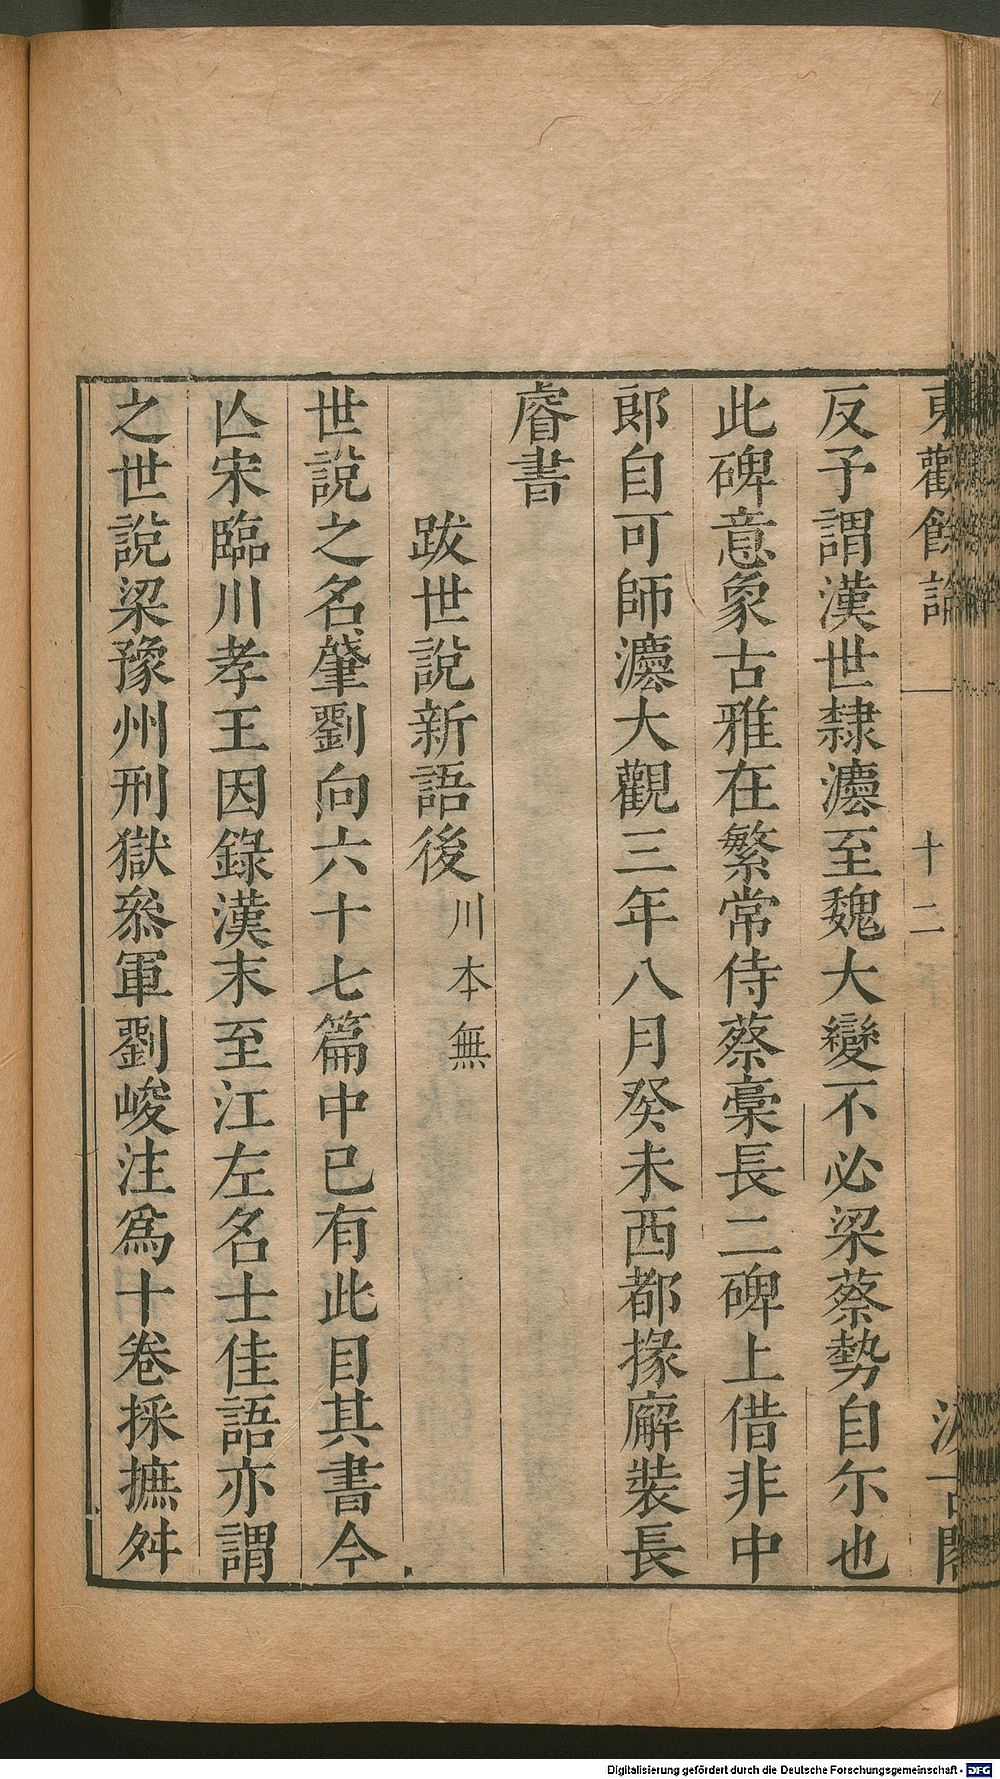 東觀餘論 十二 汲古閣
反予謂漢世隸灋至魏大變不必梁蔡勢自尓也
此碑意象古雅在繁常侍蔡槀長二碑上借非中
郎自可師灋大觀三年八月癸未西都掾廨裝長
睿書
跋世說新語後川本無
世說之名肇劉向六十七篇中已有此目其書今
亾宋臨川孝王因錄漢末至江左名士佳語亦謂
之世說梁豫州刑獄叅軍劉峻注爲十卷採摭舛
Digitalisierung gefördert durch die Deutsche Forschungsgemeinschaft - DFG